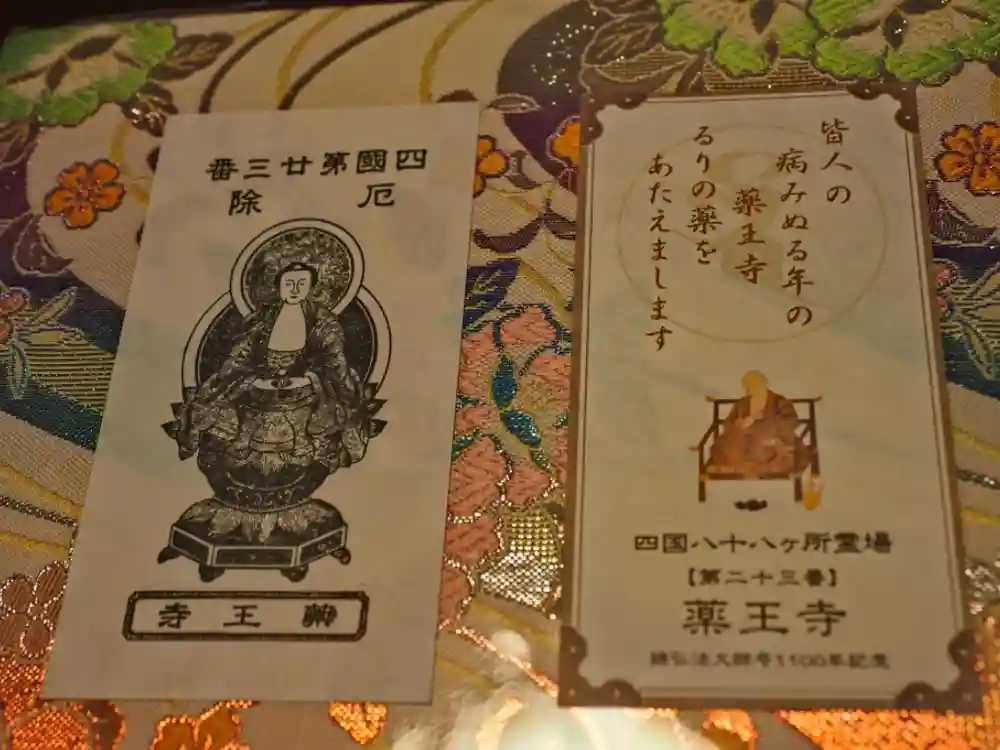 四國第廿三番
厄除
薬王寺
皆人の
病みぬる年の
薬王寺
るりの薬を
あたえまします
四国八十八ヶ所霊場
【第二十三番】
薬王寺
賜弘法大師号1100年記念